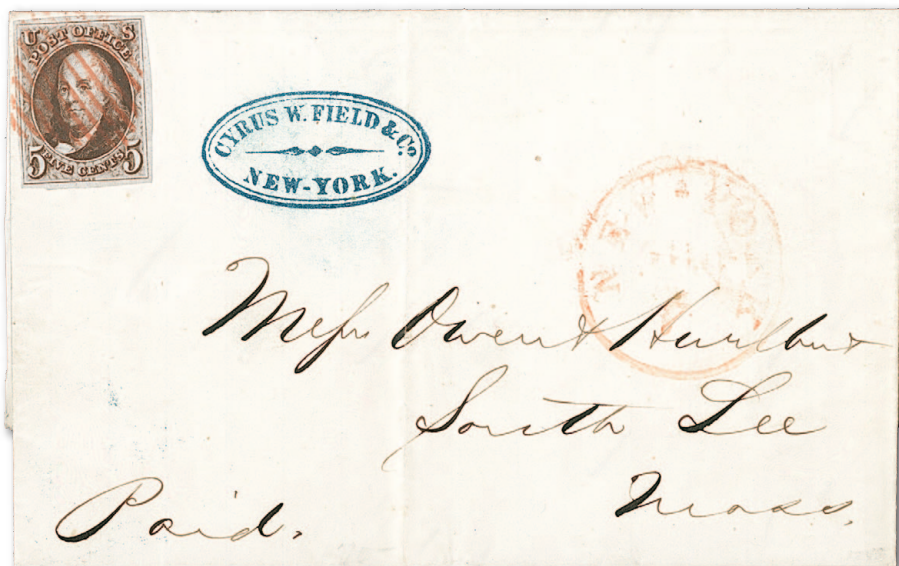 U S
POST OFFICE
5 5
FIVE CENTS
CYRUS W. FIELD & Co.
NEW-YORK.
NEW YORK
Messrs Owen & Hurlbut
South Lee
Mass.
Paid.